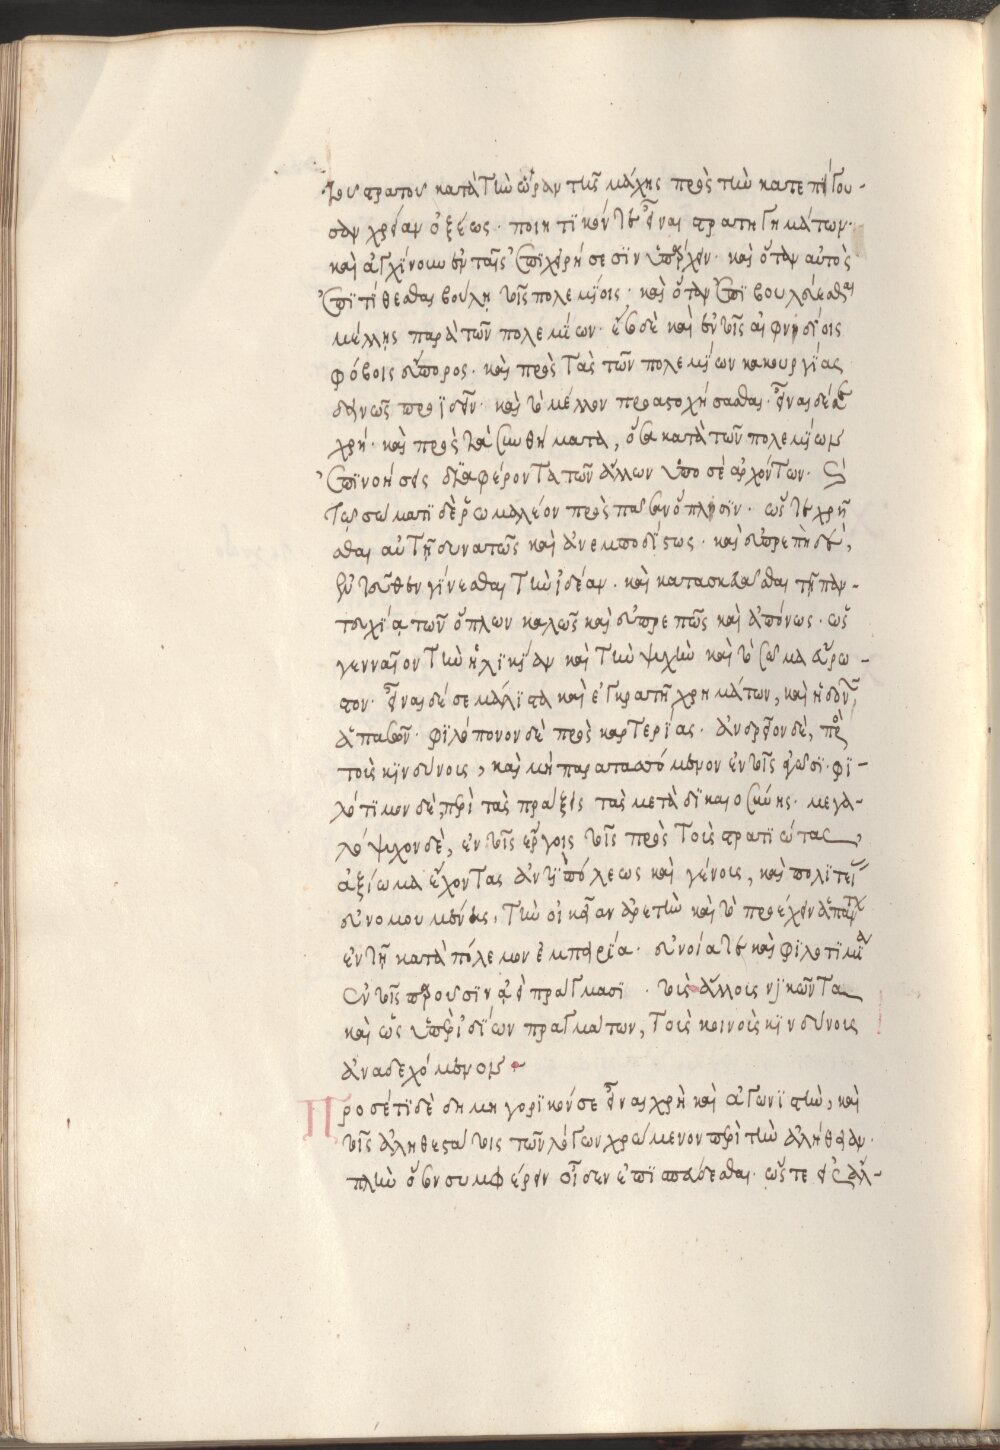 τοῦ στρατοῦ κατὰ τὴν ὥραν τῆς μάχης πρὸς τὴν κατεπείγου-
σαν χρείαν ὀξέως· ποιητικόν τε εἶναι στρατηγημάτων·
καὶ ἀγχίνουν ἐν ταῖς ἐπιχειρήσεσιν ὑπάρχειν· καὶ ὅταν αὐτὸς
ἐπιτίθεσθαι βούλῃ τοῖς πολεμίοις· καὶ ὅταν ἐπιβουλεύεσθαι
μέλλῃς παρὰ τῶν πολεμίων· ἔτι δὲ καὶ ἐν τοῖς αἰφνηδίοις
φόβοις εὔπορος· καὶ πρὸς τὰς τῶν πολεμίων κακουργίας
δεινῶς προϊδεῖν· καὶ τὸ μέλλον προαστοχήσασθαι· εἶναι δέ σε
χρὴ· καὶ πρὸς τὰ συνθήματα, ὅσα κατὰ τῶν πολεμίων
ἐπινοήσεις διαφέροντα τῶν ἄλλων ὑπό σε ἀρχόντων·
τῷ σώματι δὲ ῥωμαλέον πρὸς πᾶσαν ὅπλησιν· ὥστε χρῆ
σθαι αὐτῇ δυνατῶς καὶ ἀνεμποδίστως· καὶ εὐπρεπῆ δὲ,
ἐξ τούτων γίνεσθαι τὴν ἰδέαν· καὶ κατασκευάσθαι τῇ παν-
τευχίᾳ τῶν ὅπλων καλῶς καὶ εὐπρεπῶς καὶ ἀπόνως· ὡς
γενναῖον τὴν ἡλικίαν καὶ τὴν ψυχὴν καὶ τὸ σῶμα εὔρω-
στον· εἶναι δέ σε μάλιστα καὶ ἐγκρατῆ χρημάτων, καὶ ἡδονῶν
ἁπασῶν· φιλόπονον δὲ πρὸς καρτερίας· ἀνδρεῖον δὲ, πρὸς
τοὺς κινδύνους, καὶ μὴ παραταττόμενον ἐν τοῖς φύσι· φι-
λότιμον δὲ, περὶ τὰς πράξεις τὰς μετὰ δικαιοσύνης· μεγα-
λόψυχον δὲ, ἐν τοῖς ἔργοις τοῖς πρὸς τοὺς στρατιώτας,
ἀξίωμα ἔχοντας ἀντὶ πόλεως καὶ γένους, καὶ πολιτεί
εὐνομουμένης, τὴν οἰκείαν ἀρετὴν καὶ τὸ προέχειν ἁπάντων
ἐν τῇ κατὰ πόλεμον ἐμπειρίᾳ· εὐνοίᾳ τε καὶ φιλοτιμίᾳ
ἐν τοῖς παροῦσιν ἀεὶ πράγμασι· τοὺς ἄλλους νικῶντα
καὶ ὡς ὑπὲρ ἰδίων πραγμάτων, τοὺς κοινοὺς κινδύνους
ἀναδεχόμενον·
Προσέτι δὲ δημηγορικόν σε εἶναι χρὴ καὶ ἀγωνιστὴν, καὶ
τοῖς ἀληθεστάτοις τῶν λόγων χρώμενον περὶ τὴν ἀλήθειαν·
πλὴν ὅσον συμφέρειν οἶδεν ἐπισπάσεσθαι· ὥστε εἰς ἀλ-